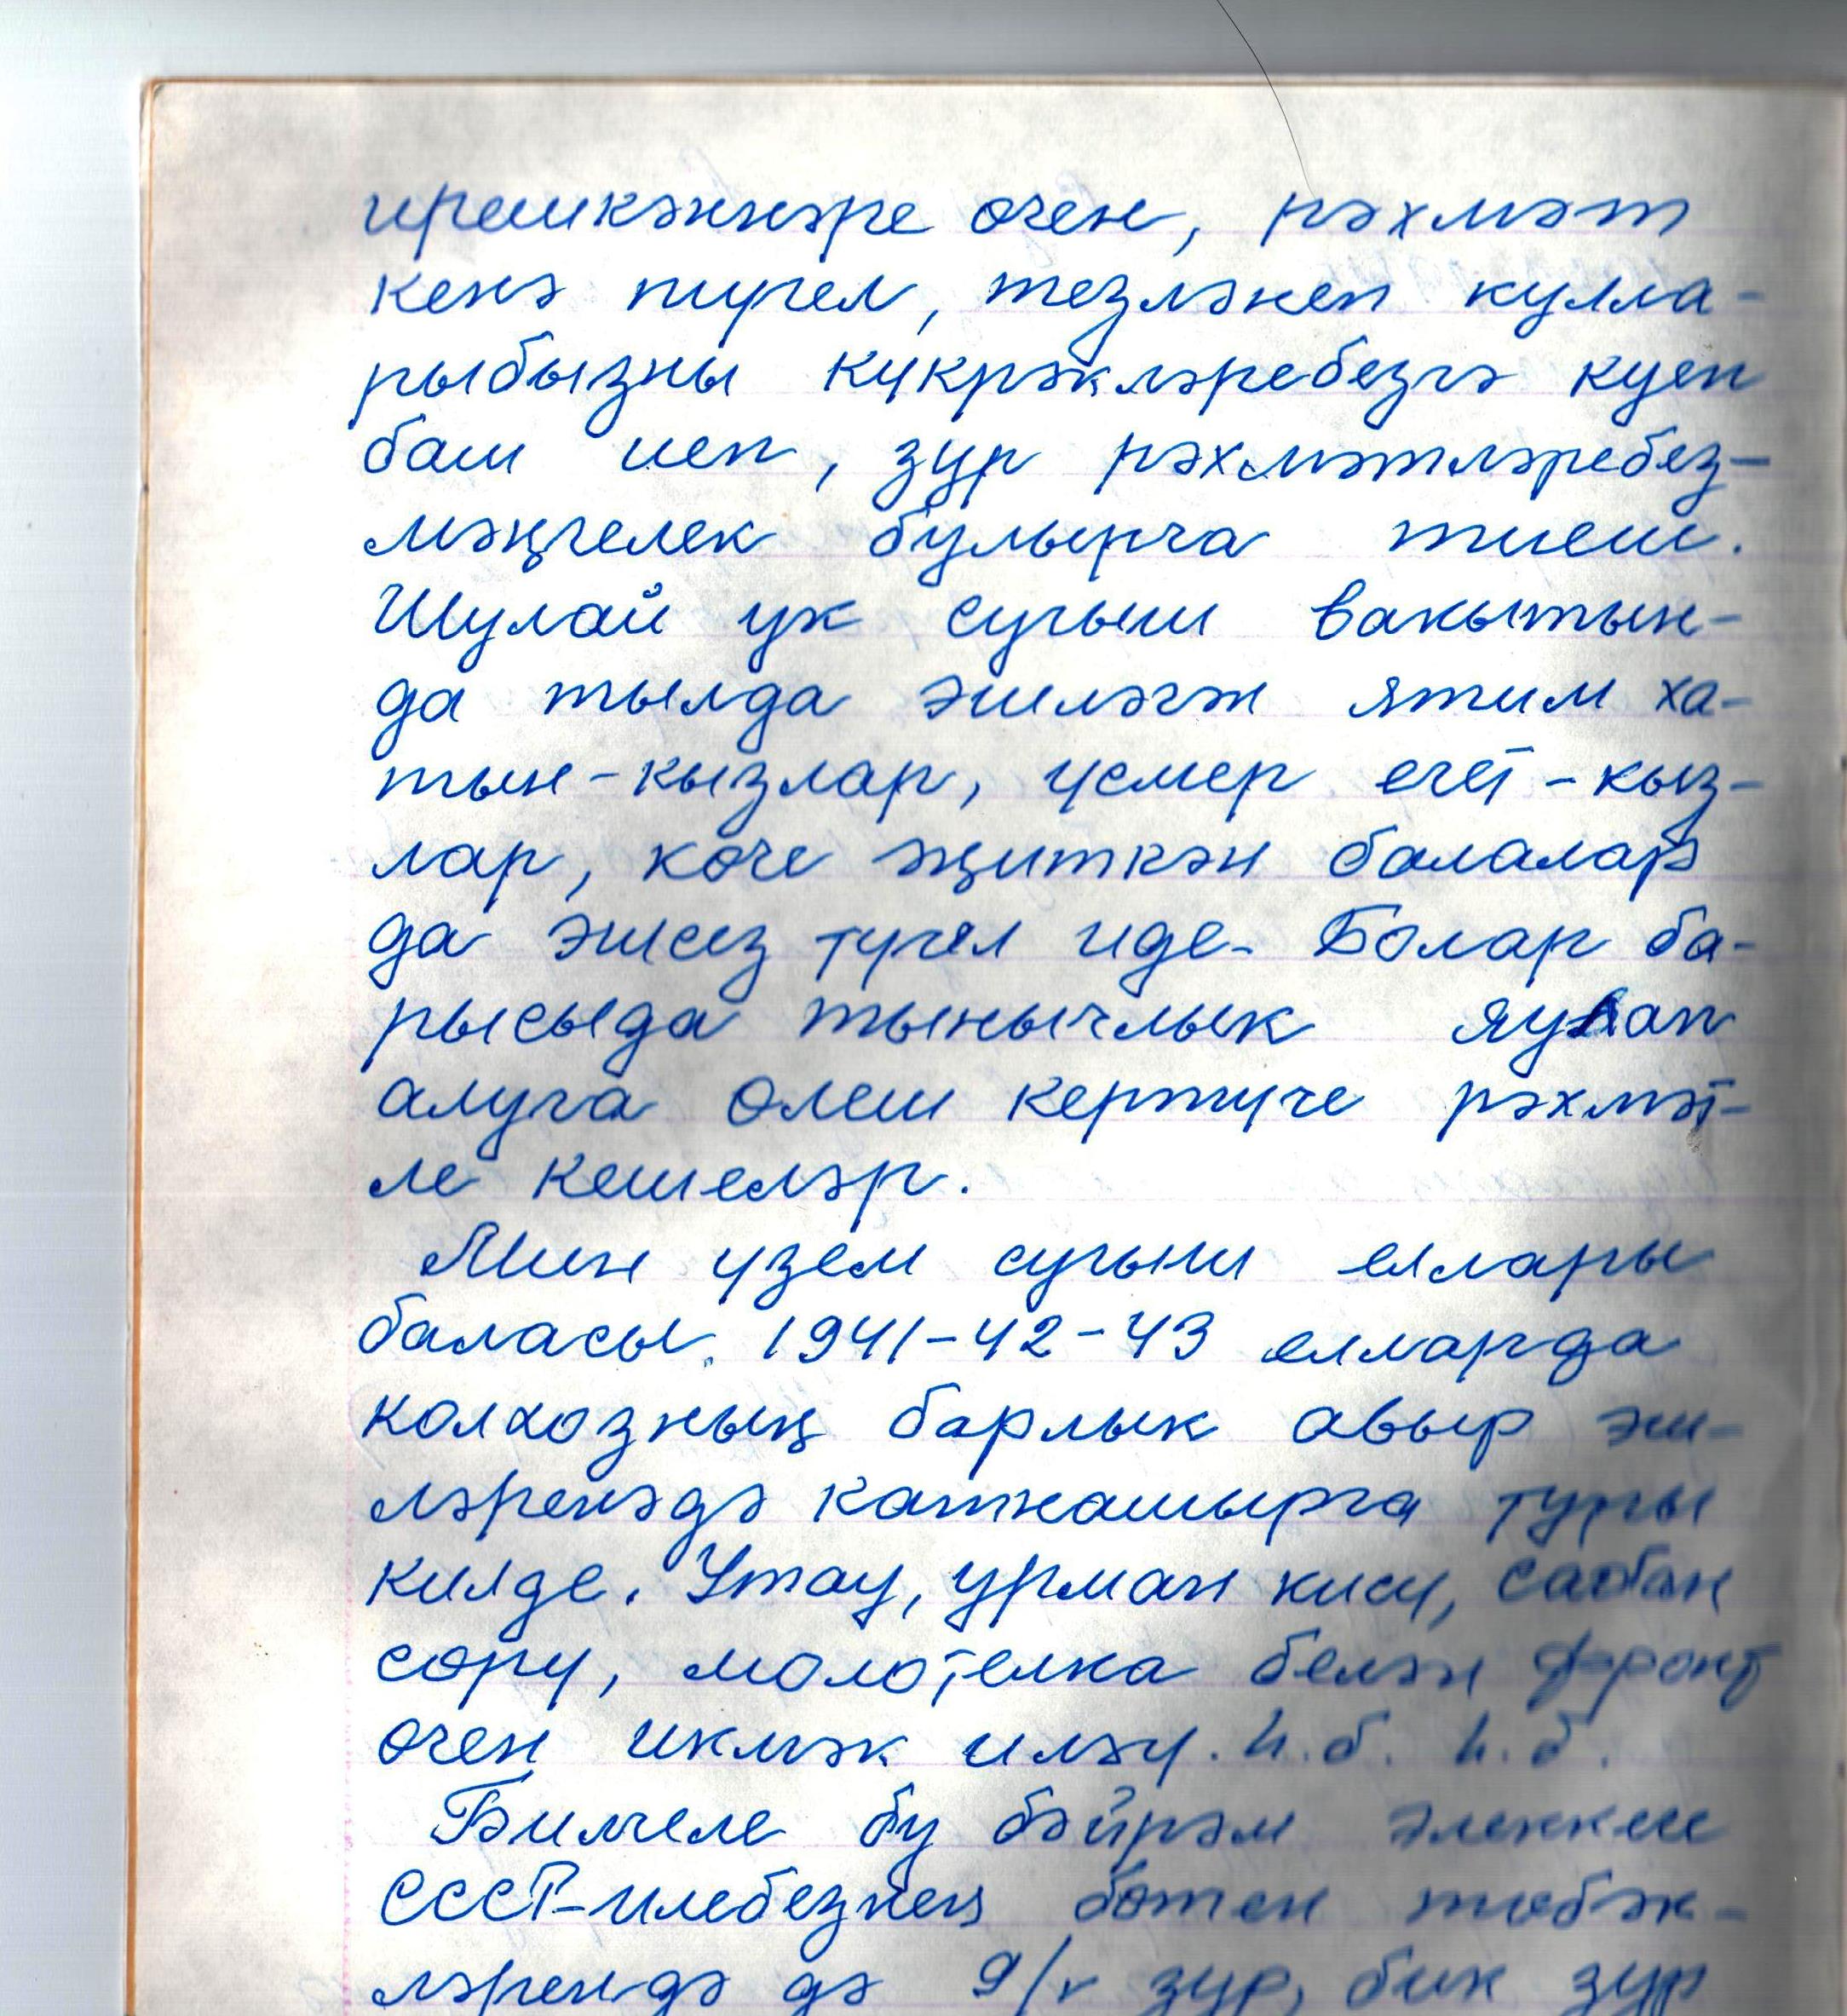 ирешкәннәре өчен, рәхмәт
кенә түгел, тезләнеп кулла-
рыбызны күкрәкләребезгә куеп
баш иеп, зур рәхмәтләребез-
мәңгелек булырга тиеш.
Шулай ук сугыш вакытын-
да тылда эшләгән ятим ха-
тын-кызлар, үсмер егет-кыз-
лар, көче җиткән балалар
да эшсез түгел иде. Болар ба-
рысыда тынычлык яулап
алуга өлеш кертүче рәхмәт-
ле кешеләр.
Мин үзем сугыш еллары
баласы. 1941-42-43 елларда
колхозның барлык авыр эш-
ләренәдә катнашырга туры
килде. Утау, урман кисү, сабан
сөрү, молотелка белән фронт
өчен икмәк иләү. һ.б. һ.б.
Билгеле бу бәйрәм элеккеге
СССР-илебезнең бөтен төбәк-
ләрендә дә 9/V зур, бик зур